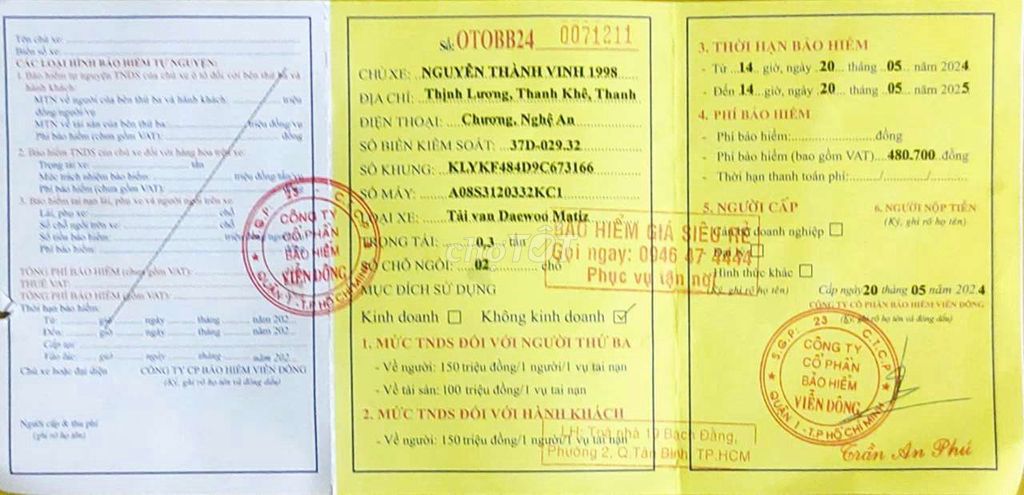 Tên chủ xe:
Biển số xe:
CÁC LOẠI HÌNH BẢO HIỂM TỰ NGUYỆN:
1. Bảo hiểm tự nguyện TNDS của chủ xe ô tô đối với bên thứ ba và
hành khách:
MTN về người của bên thứ ba và hành khách: triệu
đồng/người/vụ
MTN về tài sản của bên thứ ba: triệu đồng/vụ
Phí bảo hiểm (chưa gồm VAT): đồng
2. Bảo hiểm TNDS của chủ xe đối với hàng hóa trên xe:
Trọng tải: tấn
Mức trách nhiệm bảo hiểm: triệu đồng/tấn/vụ
Phí bảo hiểm (chưa gồm VAT):
3. Bảo hiểm tai nạn lái, phụ xe và người ngồi trên xe:
Lái, phụ xe: chỗ
Số chỗ ngồi trên xe: chỗ
Số tiền bảo hiểm: triệu đồng/người
Phí bảo hiểm:
TỔNG PHÍ BẢO HIỂM (chưa gồm VAT):
THUẾ VAT:
TỔNG PHÍ BẢO HIỂM (gồm VAT):
Thời hạn bảo hiểm:
Từ: giờ ngày tháng năm 202
Đến: giờ ngày tháng năm 202
Cấp tại:
Vào lúc: giờ ngày tháng năm 202
Chủ xe hoặc đại diện CÔNG TY CP BẢO HIỂM VIỄN ĐÔNG
(Ký, ghi rõ họ tên và đóng dấu)
Người cấp & thu phí
(ghi rõ họ tên)
Số: OTOBB24 0071211
CHỦ XE: NGUYỄN THÀNH VINH 1998
ĐỊA CHỈ: Thịnh Lương, Thanh Khê, Thanh
ĐIỆN THOẠI: Chương, Nghệ An
SỐ BIỂN KIỂM SOÁT: 37D-029.32
SỐ KHUNG: KLYKF484D9C673166
SỐ MÁY: A08S3120332KC1
LOẠI XE: Tải van Daewoo Matiz
TRỌNG TẢI: 0,3 tấn
SỐ CHỖ NGỒI: 02 chỗ
MỤC ĐÍCH SỬ DỤNG
Kinh doanh Không kinh doanh
1. MỨC TNDS ĐỐI VỚI NGƯỜI THỨ BA
- Về người: 150 triệu đồng/1 người/1 vụ tai nạn
- Về tài sản: 100 triệu đồng/1 vụ tai nạn
2. MỨC TNDS ĐỐI VỚI HÀNH KHÁCH
- Về người: 150 triệu đồng/1 người/1 vụ tai nạn
S.G.P: 23 C.T.C.P
CÔNG TY
CỔ PHẦN
BẢO HIỂM
VIỄN ĐÔNG
QUẬN 1 - T.P HỒ CHÍ MINH
BẢO HIỂM GIÁ SIÊU RẺ
Gọi ngay: 0946 47 4444
Phục vụ tận nơi
LH: Toà nhà 19 Bạch Đằng,
Phường 2, Q.Tân Bình, TP.HCM
chợTỐT
3. THỜI HẠN BẢO HIỂM
- Từ 14 giờ, ngày 20 tháng 05 năm 2024
- Đến 14 giờ, ngày 20 tháng 05 năm 2025
4. PHÍ BẢO HIỂM
- Phí bảo hiểm: đồng
- Phí bảo hiểm (bao gồm VAT) 480.700 đồng
- Thời hạn thanh toán phí: / /
5. NGƯỜI CẤP 6. NGƯỜI NỘP TIỀN
(Ký, ghi rõ họ tên)
Cán bộ doanh nghiệp
Đại lý
Hình thức khác
(Ký, ghi rõ họ tên) Cấp ngày 20 tháng 05 năm 2024
CÔNG TY CỔ PHẦN BẢO HIỂM VIỄN ĐÔNG
(Ký, ghi rõ họ tên và đóng dấu)
S.G.P: 23 C.T.C.P
CÔNG TY
CỔ PHẦN
BẢO HIỂM
VIỄN ĐÔNG
QUẬN 1 - T.P HỒ CHÍ MINH
Trần An Phú